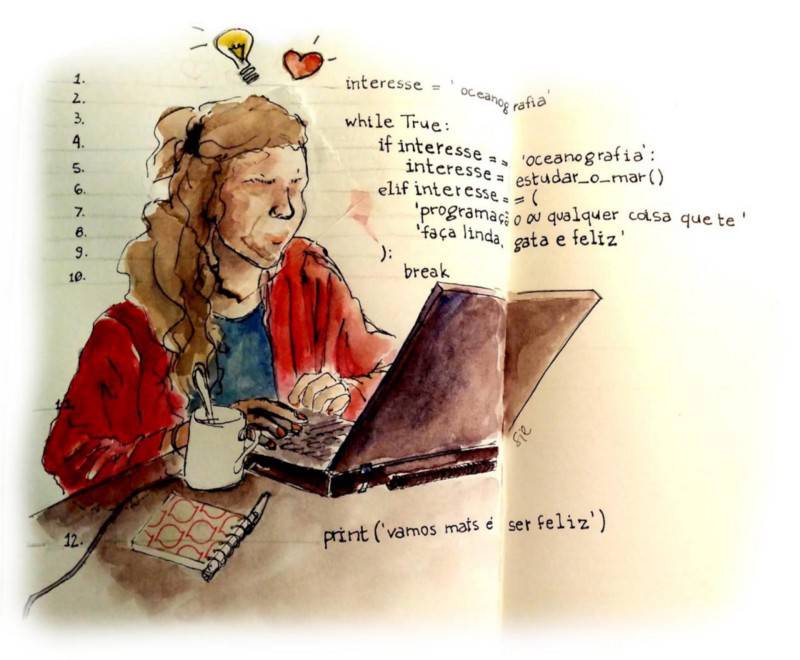 1. interesse = 'oceanografia'
2.
3. while True:
4. if interesse == 'oceanografia':
5. interesse = estudar_o_mar()
6. elif interesse == (
7. 'programação ou qualquer coisa que te'
8. 'faça linda, gata e feliz'
9. ):
10. break
11.
12. print('vamos mais é ser feliz')
sie